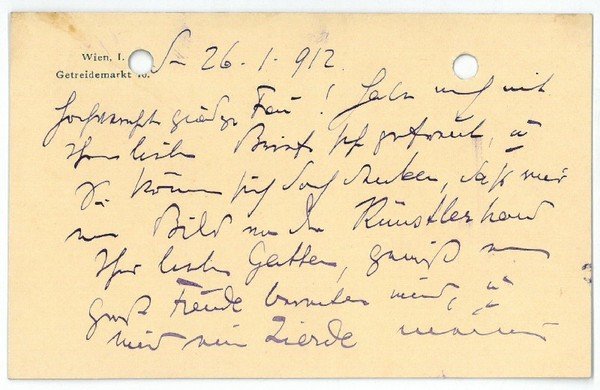 Wien, I. 26. 1. 912.
Getreidemarkt 10.
Hochverehrte gnädige Frau! Habe mich mit
Ihrem lieben Brief sehr gefreut, u
Sie können sich doch denken, daß mir
ein Bild von der Künstlerhand
Ihres lieben Gatten, gewiß eine
große Freude bereiten wird, u
wird eine Zierde meines